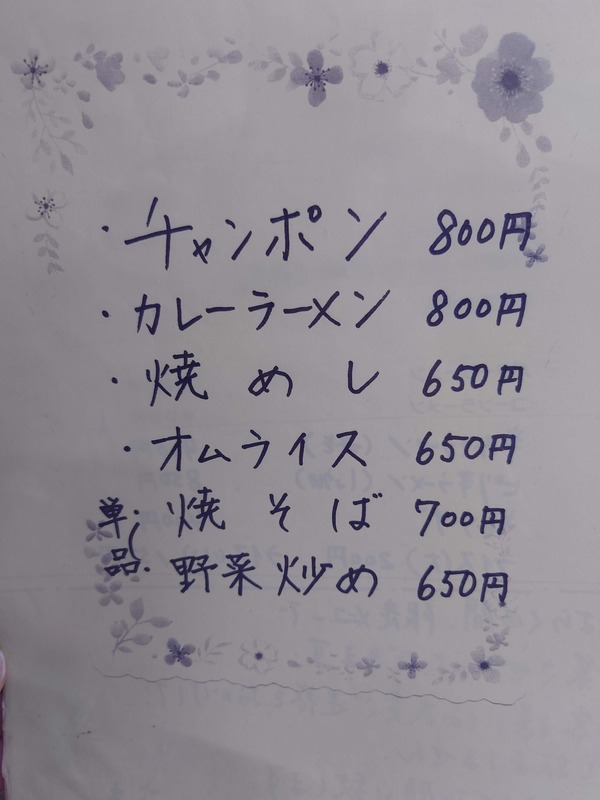 ・チャンポン 800円
・カレーラーメン 800円
・焼めし 650円
・オムライス 650円
単品・焼そば 700円
・野菜炒め 650円